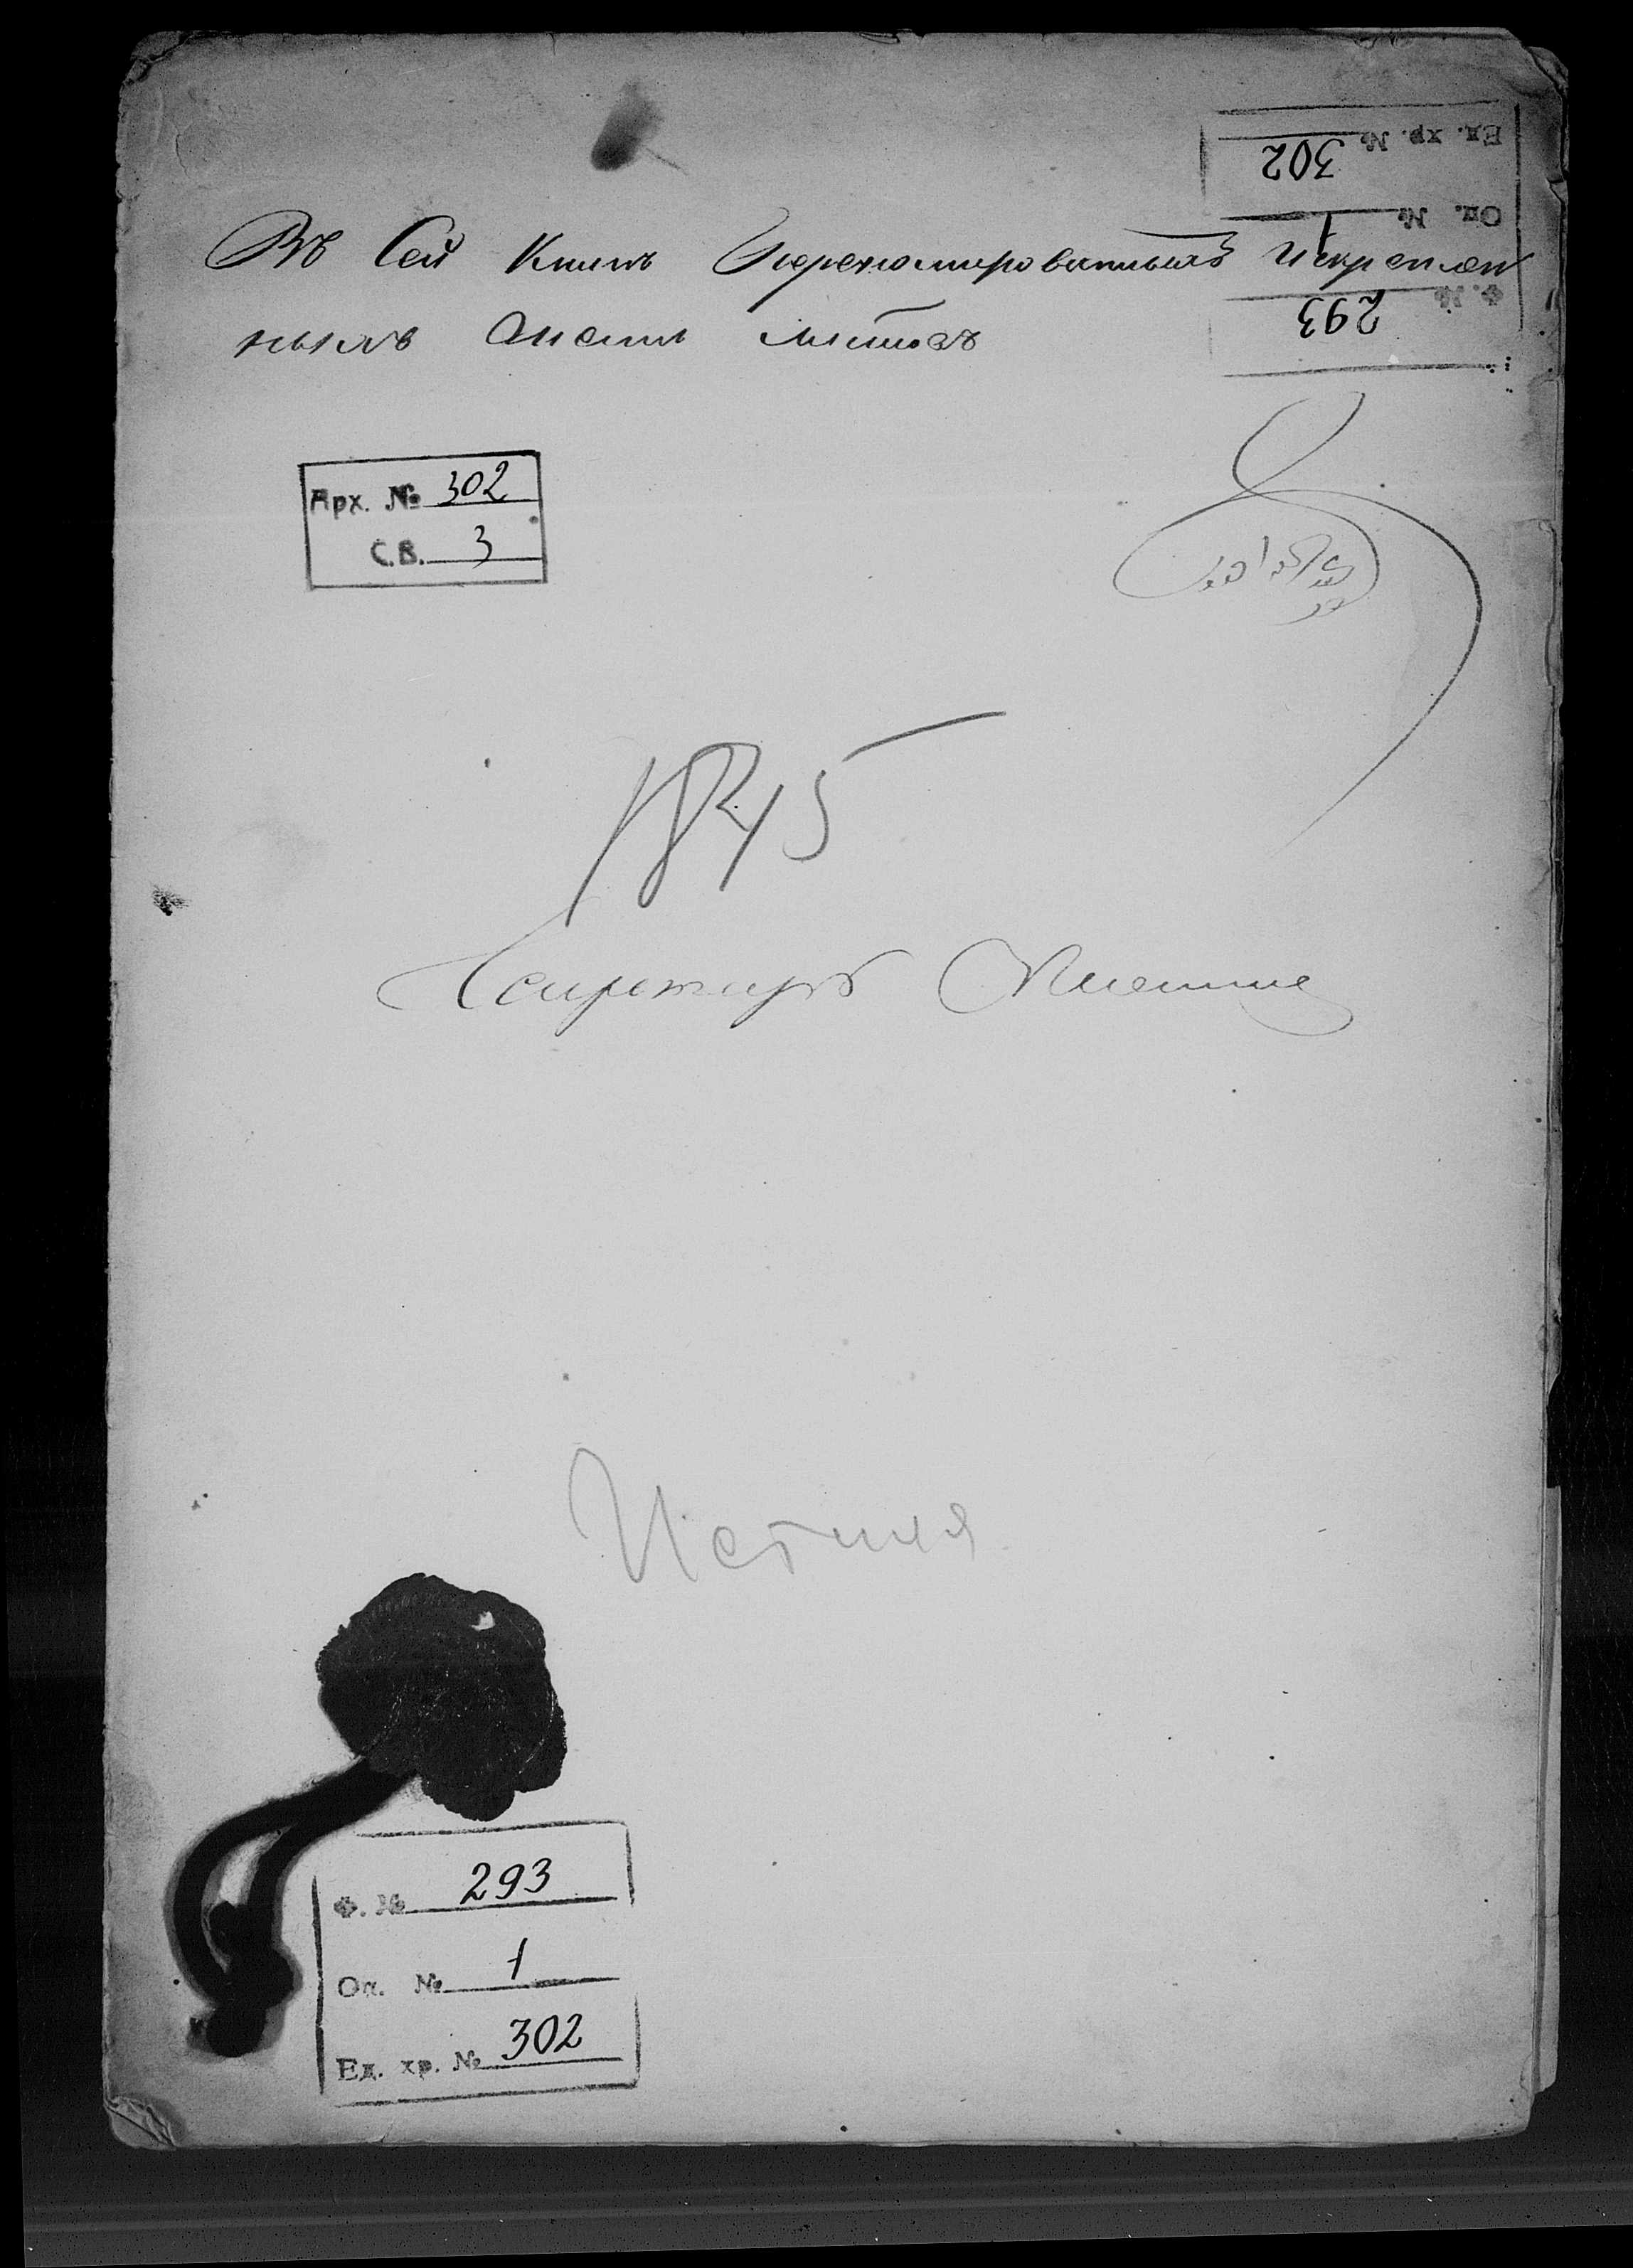 Въ Сей Книгѣ Перенумерованныхъ и скрѣплен
ныхъ листовъ
Ед. хр. № 302
Оп. № 1
Ф. № 293
Арх. № 302
С.В. 3
№ 45
Секретарь
Ф. № 293
Оп. № 1
Ед. хр. № 302